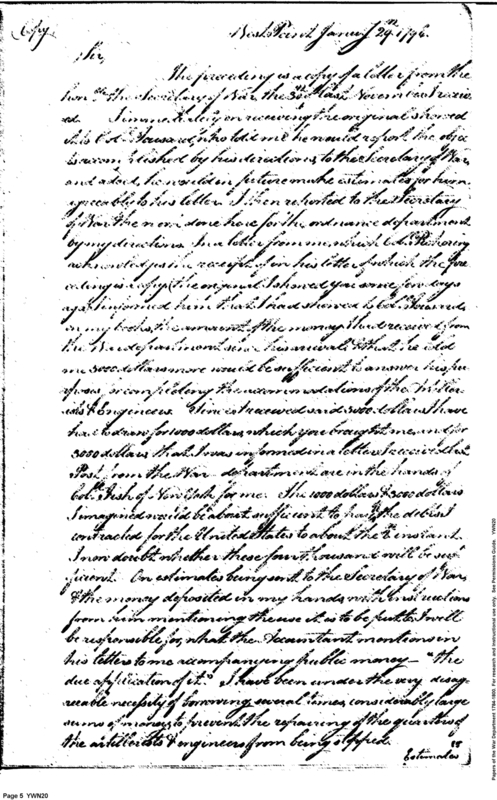 Copy
West Point Janury 29th 1796.
Sir,
The preceding is a copy of a letter from the
honble the Secretary of War, the 30th last November I receiv
ed. Immediately on receiving the original I showed
it to Col. Rousard, who told me he would report the objects
accomplished by his directions, to the Secretary of War,
and added, he would in future make estimates for him
agreeably to his letter. I then reported to the Secretary
of War the work done here for the ordnance department
by my directions. In a letter from me, which Col. Pickering
acknowledges the receipt of in his letter of which the pre
ceding is a copy, the original I showed you some few days
ago, I informed him that I had showed to Col. Rousard
in my books, the amount of the money I had received from
the War department since his arrival, & that he told
me 5000 dollars more would be sufficient to answer his pur
poses for completing the accommodations of the Artiller
ists & Engineers. Since I received said 5000 dollars I have
had to draw for 1000 dollars, which you brought me, and for
3000 dollars that I was informed in a letter I received last
Post from the War department are in the hands of
Col. Fish of New York for me. The 1000 dollars & 3000 dollars
I imagined would be about sufficient to pay the debts I
contracted for the United States to about the instant.
I now doubt whether these four thousand will be suf
ficient. On estimates being sent to the Secretary of War,
& the money deposited in my hands, with instructions
from him mentioning the use it is to be put to I will
be responsible for, what the Accountant mentions in
his letters to me accompanying public money — "the
due application of it." I have been under the very disag
reeable necessity of borrowing several times, considerably large
sums of money to prevent the repairing of the quarters of
the artillerists & engineers from being stopped.
Estimates
Page 5 YWN20
Papers of the War Department 1784-1800. For research and instructional use only. See Permissions Guide. YWN20